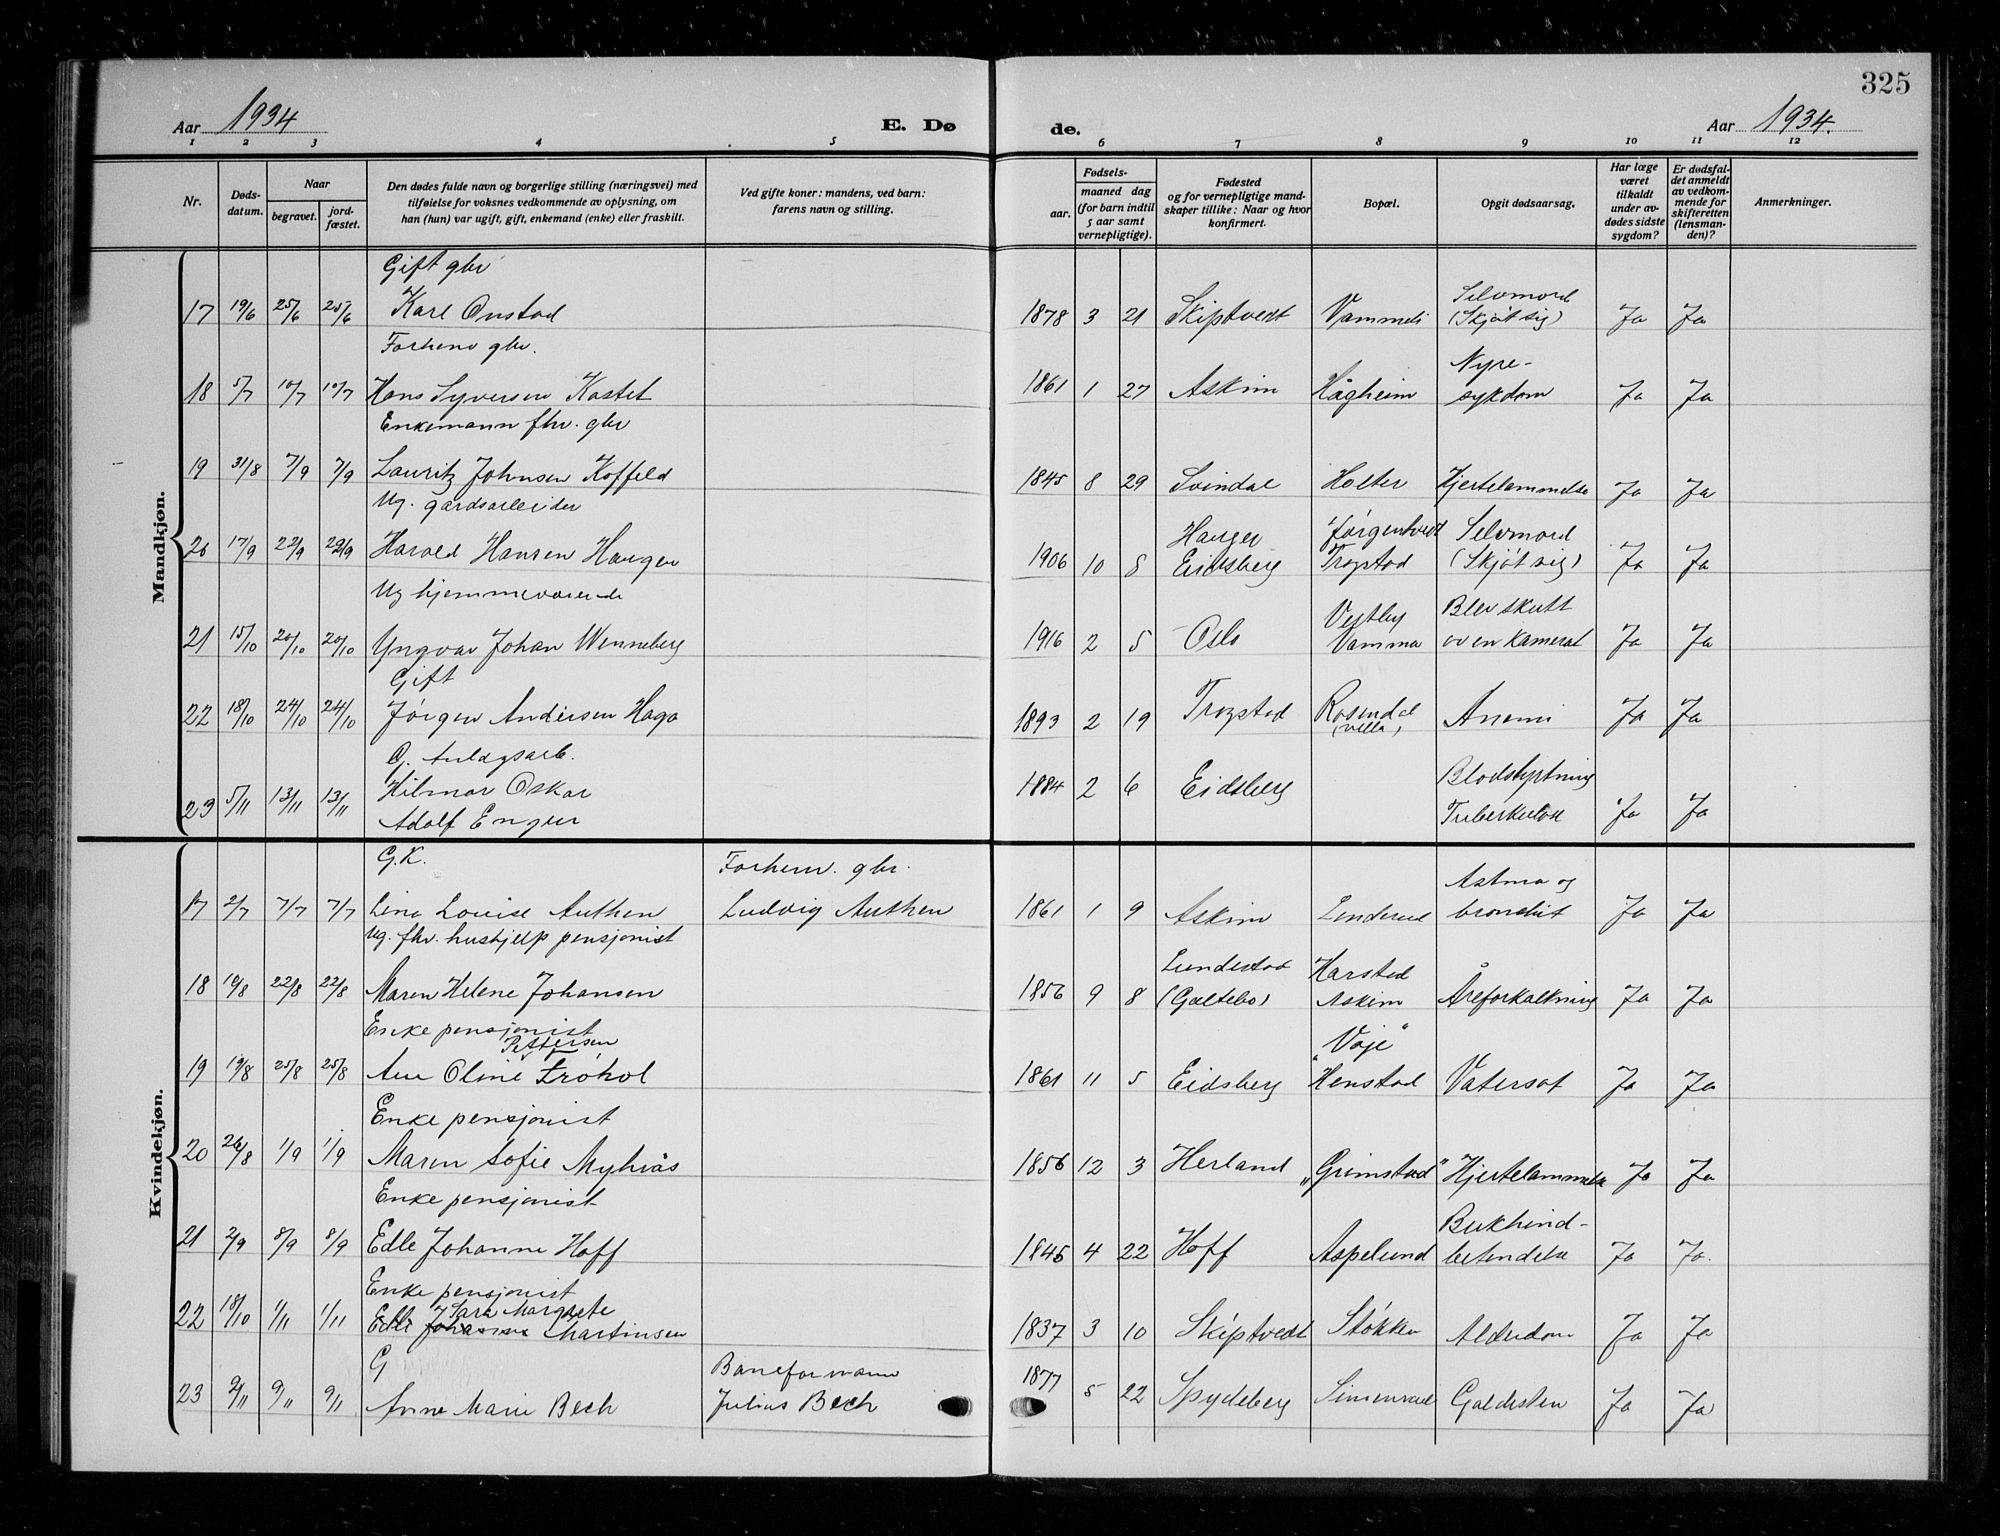 325
Aar 1934
E. Dø
de.
Aar 1934.
1 2 3 4 5 6 7 8 9 10 11 12
Nr.
Døds-
datum.
Naar
begravet.
jord-
fæstet.
Den dødes fulde navn og borgerlige stilling (næringsvei) med
tilføielse for voksnes vedkommende av oplysning, om
han (hun) var ugift, gift, enkemand (enke) eller fraskilt.
Ved gifte koner: mandens, ved barn:
farens navn og stilling.
Fødsels-
aar.
maaned dag
(for barn indtil
5 aar samt
vernepligtige).
Fødested
og for vernepligtige mand-
skaper tillike: Naar og hvor
konfirmert.
Bopæl.
Opgit dødsaarsag.
Har læge
været
tilkaldt
under av-
dødes sidste
sygdom?
Er dødsfal-
det anmeldt
av vedkom-
mende for
skifteretten
(lensman-
den)?
Anmerkninger.
Mandkjøn.
Gift gbr
Selvmord
17 19/6 25/6 25/6 Karl Onstad 1878 3 21 Skiptvedt Vammeli (Skjøt sig) Ja Ja
Forhenv gbr.
Nyre-
18 5/7 10/7 10/7 Hans Syversen Kastet 1861 1 27 Askim Hågheim sykdom Ja Ja
Enkemann fhv. gbr
19 31/8 7/9 7/9 Lauritz Johnsen Koffeld 1845 8 29 Svindal Holter Hjertelammelse Ja Ja
Ug. gårdsarbeider
Haugen Jørgentvedt Selvmord
20 17/9 22/9 22/9 Harald Hansen Haugen 1906 10 8 Eidsberg Trøgstad (Skjøt sig) Ja Ja
Ug hjemmeværende
Vestby Blev skutt
21 15/10 20/10 20/10 Yngvar Johan Wenneberg 1916 2 5 Oslo Vamma av en kamerat Ja Ja
Gift
22 18/10 24/10 24/10 Jørgen Andersen Haga 1893 2 19 Trøgstad Rosendal (villa) Anemi Ja Ja
G. Anleggsarb.
Hilmar Oskar 1884 2 6 Eidsberg Blodstyrtning
23 5/11 13/11 13/11 Adolf Enger Tuberkulose Ja Ja
Kvindekjøn.
G.K. Forhenv. gbr.
Astma og
17 2/7 7/7 7/7 Lina Louise Authen Ludvig Authen 1861 1 9 Askim Lenderud bronchit Ja Ja
Ug. fhv. hushjelp pensjonist
Lundestad Harstad
18 19/8 22/8 22/8 Maren Helene Johansen 1856 9 8 (Galtebo) Askim Åreforkalkning Ja Ja
Enke pensjonist
Pettersen
"Vøje"
19 19/8 25/8 25/8 Ane Oline Frøhol 1861 11 5 Eidsberg Henstad Vatersot Ja Ja
Enke pensjonist
20 26/8 1/9 1/9 Maren Sofie Myhrås 1856 12 3 Herland "Grimstad" Hjertelammelse Ja Ja
Enke pensjonist
Bukhind-
21 2/9 8/9 8/9 Edle Johanne Hoff 1845 4 22 Hoff Aspelund betendelse Ja Ja.
Enke pensjonist
Sara Margrete
22 18/10 1/11 1/11 Edle Johanne Martinsen 1837 3 10 Skiptvedt Støkken Alderdom Ja Ja
G Baneformann
23 2/11 9/11 9/11 Anne Marie Bech Julius Bech 1877 5 22 Spydeberg Simenrud Galdesten Ja Ja